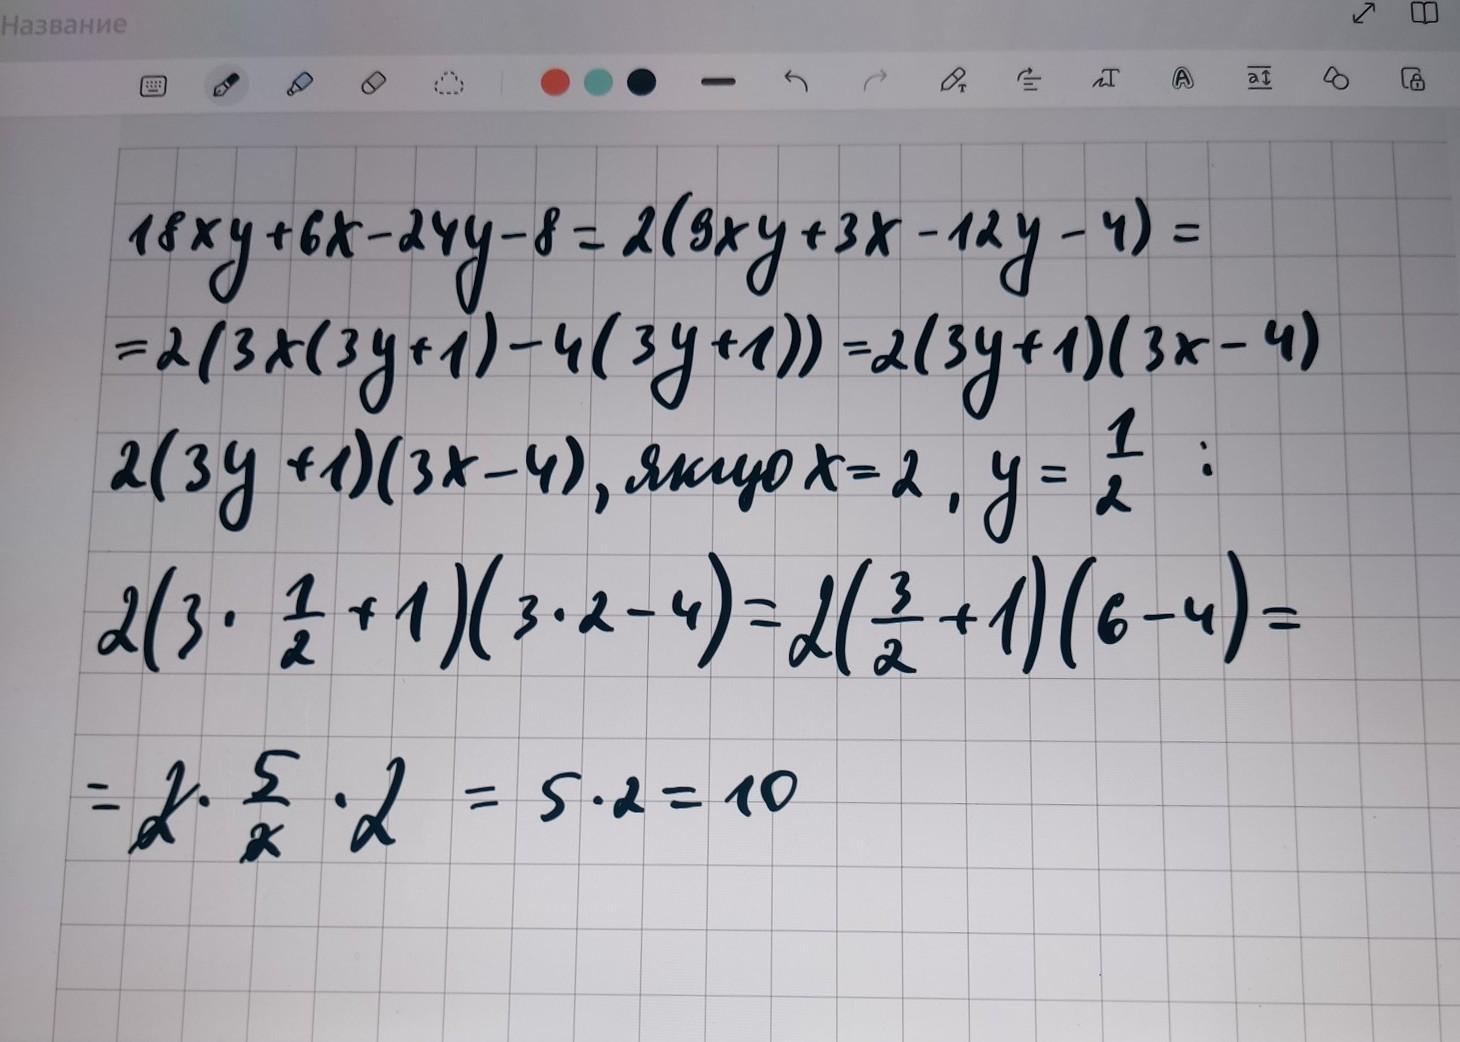 Название
18xy+6x-24y-8=2(9xy+3x-12y-4)=
=2(3x(3y+1)-4(3y+1))=2(3y+1)(3x-4)
2(3y+1)(3x-4), якщо x=2, y=1/2 :
2(3·1/2+1)(3·2-4)=2(3/2+1)(6-4)=
=2·5/2·2=5·2=10